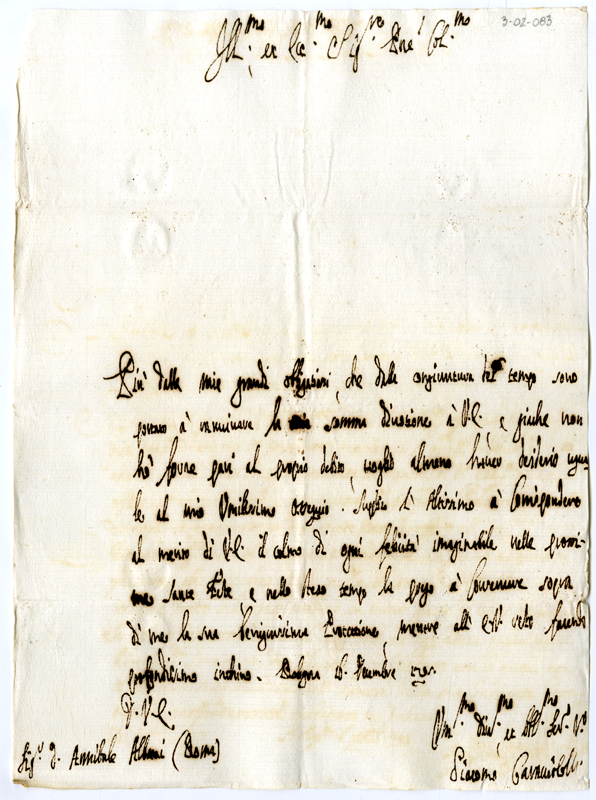 3-02-083
Ill.mo et Ecc.mo Sig.re Pne Col.mo
Più dalle mie grandi obligazioni, che dalla congiuntura del tempo sono
portato à rassegnare la mia somma divozione à V.E. e giache non
hò forze pari al proprio debito, voglio almeno haver desiderio ugua
le al mio Umilissimo ossequio. Supplico l'Altissimo à Corispondere
al merito di V.E. il colmo di ogni felicità imaginabile nelle prossi-
me Sante Feste e nello stesso tempo la prego à Conservare sopra
di me la sua benignissima Protezione, mentre all' E.V. resto facendo
profondissimo inchino. Bologna 16. Xcembre
D. V.E.
Sig.r D. Annibale Albani (Roma)
Um.mo Div.mo et Obl.mo Ser.r V.o
Giacomo